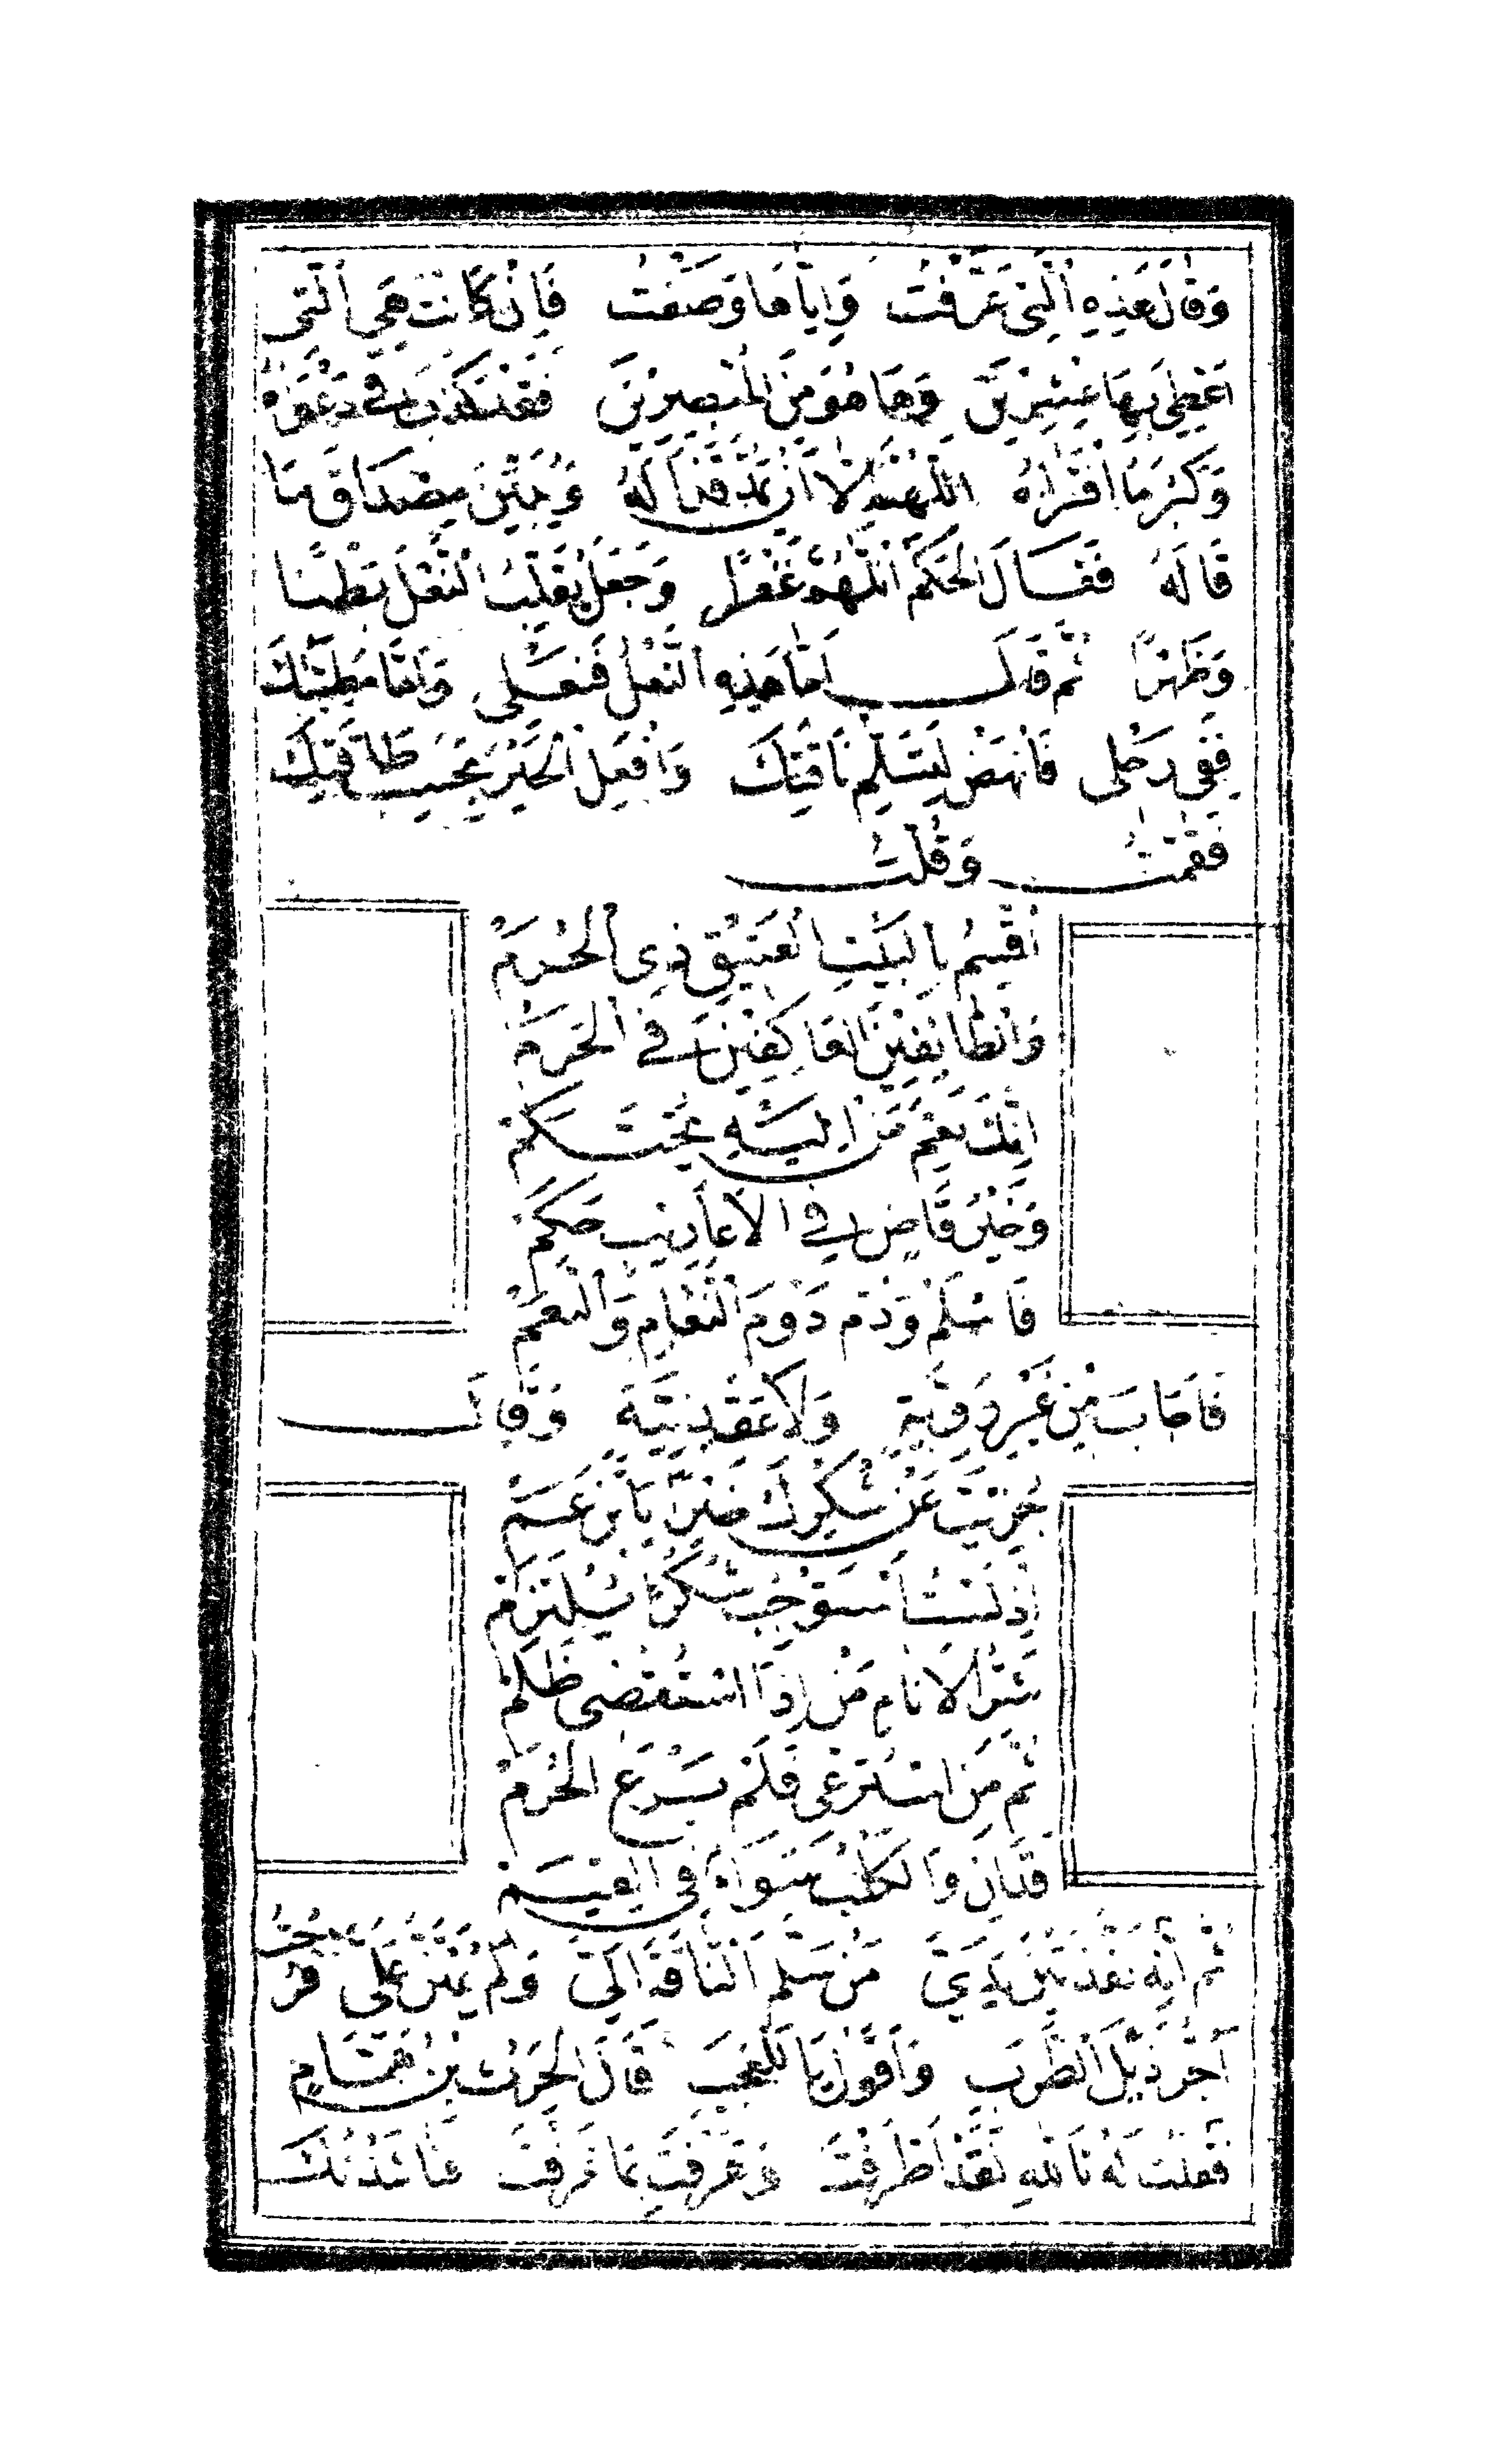 وَقَالَ هَذِهِ الَّتِي عَرَّفْتُ وَإِيَّاهَا وَصَفْتُ فَإِنْ كَانَتْ هِيَ الَّتِي
أُعْطِيَ بِهَا عِشْرِينَ وَهَا هُوَ مِنَ الْمُبْصِرِينَ فَقَدْ كَذَبَ فِي دَعْوَاهُ
وَكَبُرَ مَا افْتَرَاهُ اللَّهُمَّ إِلَّا أَنْ يَمُدَّ قَذَالَهُ وَيُبَيِّنَ مِصْدَاقَ مَا
قَالَهُ فَقَالَ الْحَكَمُ اللَّهُمَّ غَفْرًا وَجَعَلَ يُقَلِّبُ النَّعْلَ بَطْنًا
وَظَهْرًا ثُمَّ قَالَ أَمَّا هَذِهِ النَّعْلُ فَنَعْلِي وَأَمَّا مَطِيَّتُكَ
فَفِي رَحْلِي فَانْهَضْ لِتَسَلُّمِ نَاقَتِكَ وَافْعَلِ الْخَيْرَ بِحَسَبِ طَاقَتِكَ
فَقُمْتُ وَقُلْتُ
أُقْسِمُ بِالْبَيْتِ الْعَتِيقِ ذِي الْحُرَمْ
وَالطَّائِفِينَ الْعَاكِفِينَ فِي الْحَرَمْ
إِنَّكَ نِعْمَ مَنْ إِلَيْهِ يُحْتَكَمْ
وَخَيْرُ قَاضٍ فِي الْأَعَارِيبِ حَكَمْ
فَاسْلَمْ وَدُمْ دَوْمَ النَّعَامِ وَالنَّعَمْ
فَأَجَابَ مِنْ غَيْرِ رَوِيَّةٍ وَلَا عَقْدِ نِيَّةٍ وَقَالَ
جُزِيتَ عَنْ شُكْرِكَ خَيْرًا يَا بْنَ عَمْ
إِذْ لَسْتُ أَسْتَوْجِبُ شُكْرًا يُلْتَزَمْ
شَرُّ الْأَنَامِ مَنْ إِذَا اسْتُقْضِيَ ظَلَمْ
ثُمَّ مَنِ اسْتُرْعِيَ فَلَمْ يَرْعَ الْحُرَمْ
فَذَانِ وَالْكَلْبُ سَوَاءٌ فِي الْقِيَمْ
ثُمَّ إِنَّهُ نَفَّذَ بَيْنَ يَدَيَّ مَنْ سَلَّمَ النَّاقَةَ إِلَيَّ وَلَمْ يَمْتَنَّ عَلَيَّ فَرُحْتُ
أَجُرُّ ذَيْلَ الطَّرَبِ وَأَقُولُ يَا لَلْعَجَبِ قَالَ الْحَرِثُ بْنُ هَمَّامٍ
فَقُلْتُ لَهُ تَاللهِ لَقَدْ أَطْرَفْتَ وَهَرَفْتَ بِمَا عَرَفْتَ فَنَاشَدْتُكَ